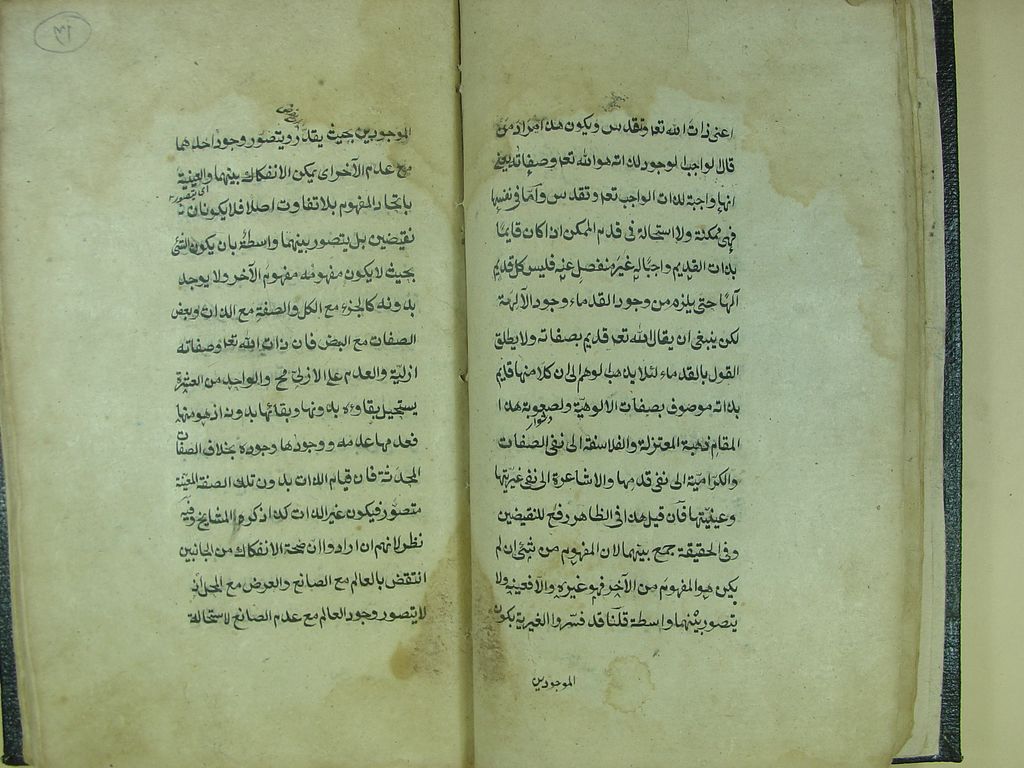 اعنى ذات الله تعا وتقدس ويكون هذا مراد من
قال لواجب الوجود لذاته هو الله تعا وصفاته يعنى
انها واجبة لذات الواجب تعا وتقدس وآما فى نفسها
فهى ممكنة ولا استحالة فى قدم الممكن اذا كان قايما
بذات القديم واجبا له غير منفصل عنه فليس كل قديم
آلها حتى يلزم من وجود القدماء وجود الآلهة
لكن ينبغى ان يقال الله تعا قديم بصفاته ولا يطلق
القول بالقدماء لئلا يذهب الوهم الى ان كلا منها قديم
بذاته موصوف بصفات الالوهية ولصعوبة هذا
المقام ذهبة المعتزلة والفلاسفة الى نفى الصفات
والكرامية الى نفى قدمها والاشاعرة الى نفى غيريتها
وعينيتها فآن قيل هذا فى الظاهر رفع للنقيضين
وفى الحقيقة جمع بينهما لان المفهوم من شئ ان لم
يكن هو المفهوم من الآخر فهو غيره والا فعينه ولا
يتصور بينهما واسطة قلنا قد فسروا الغيرية بكون
الموجودين
١٣
الموجودين بحيث يقدر ويتصور وجود احدهما
مع عدم الآخر اى يمكن الانفكاك بينهما والعينية
باتحاد المفهوم بلا تفاوت اصلا فلا يكونان
نقيضين بل يتصور بينهما واسطة بان يكون الشئ
بحيث لا يكون مفهومه مفهوم الآخر ولا يوجد
بدونه كالجزء مع الكل والصفة مع الذات وبعض
الصفات مع البعض فان ذات الله تعا وصفاته
ازلية والعدم على الازلى مح والواحد من العشرة
يستحيل بقاؤه بدونها وبقائها بدونه اذ هو منها
فعدمها عدمه ووجودها وجوده بخلاف الصفات
المحدثة فان قيام الذات بدون تلك الصفة المعينة
متصور فيكون غير الذات كذا ذكره المشايخ وفيه
نظر لانهم ان ارادوا ان صحة الانفكاك من الجانبين
انتقض بالعالم مع الصانع والعرض مع المحل اذ
لا يتصور وجود العالم مع عدم الصانع لاستحالة